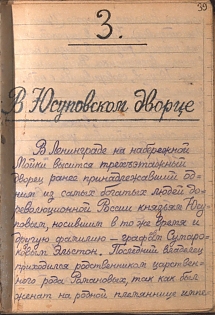 39
3.
В Юсуповском дворце
В Ленинграде на набережной
Мойки высится трехэтажный
дворец ранее принадлежавший од-
ним из самых богатых людей до-
революционной России князьям Юсу-
повым, носившим в то же время и
другую фамилию – графов Сумаро-
ковых Эльстон. Последний владелец
приходился родственником царствен-
ного рода Романовых, так как был
женат на родной племяннице импе-